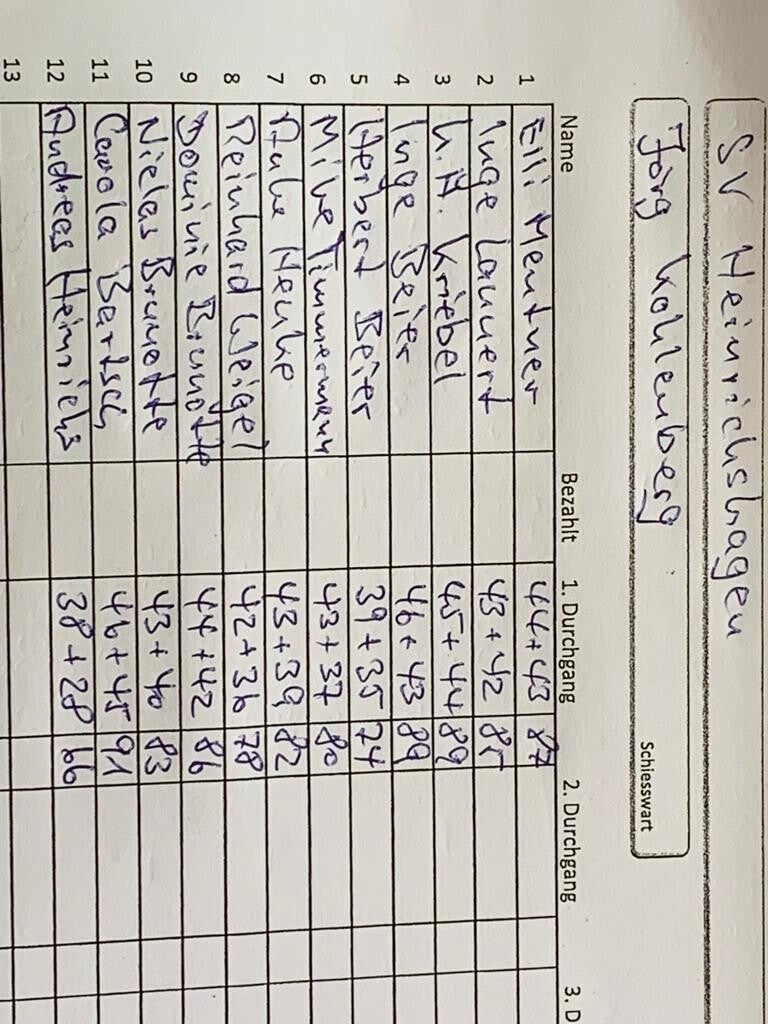 SV Heinrichshagen
Jörg Kohlenberg Schiesswart
Name Bezahlt 1. Durchgang 2. Durchgang 3. D
1 Elli Mentner 44+43 87
2 Inge Lannert 43+42 85
3 H.H. Kriebel 45+44 89
4 Inge Beier 46+43 89
5 Herbert Beier 39+35 74
6 Mike Timmermann 43+37 80
7 Anke Henke 43+39 82
8 Reinhard Weigel 42+36 78
9 Dominie Brunotte 44+42 86
10 Niclas Brunotte 43+40 83
11 Carola Bartsch 46+45 91
12 Andreas Heinrichs 38+28 66
13